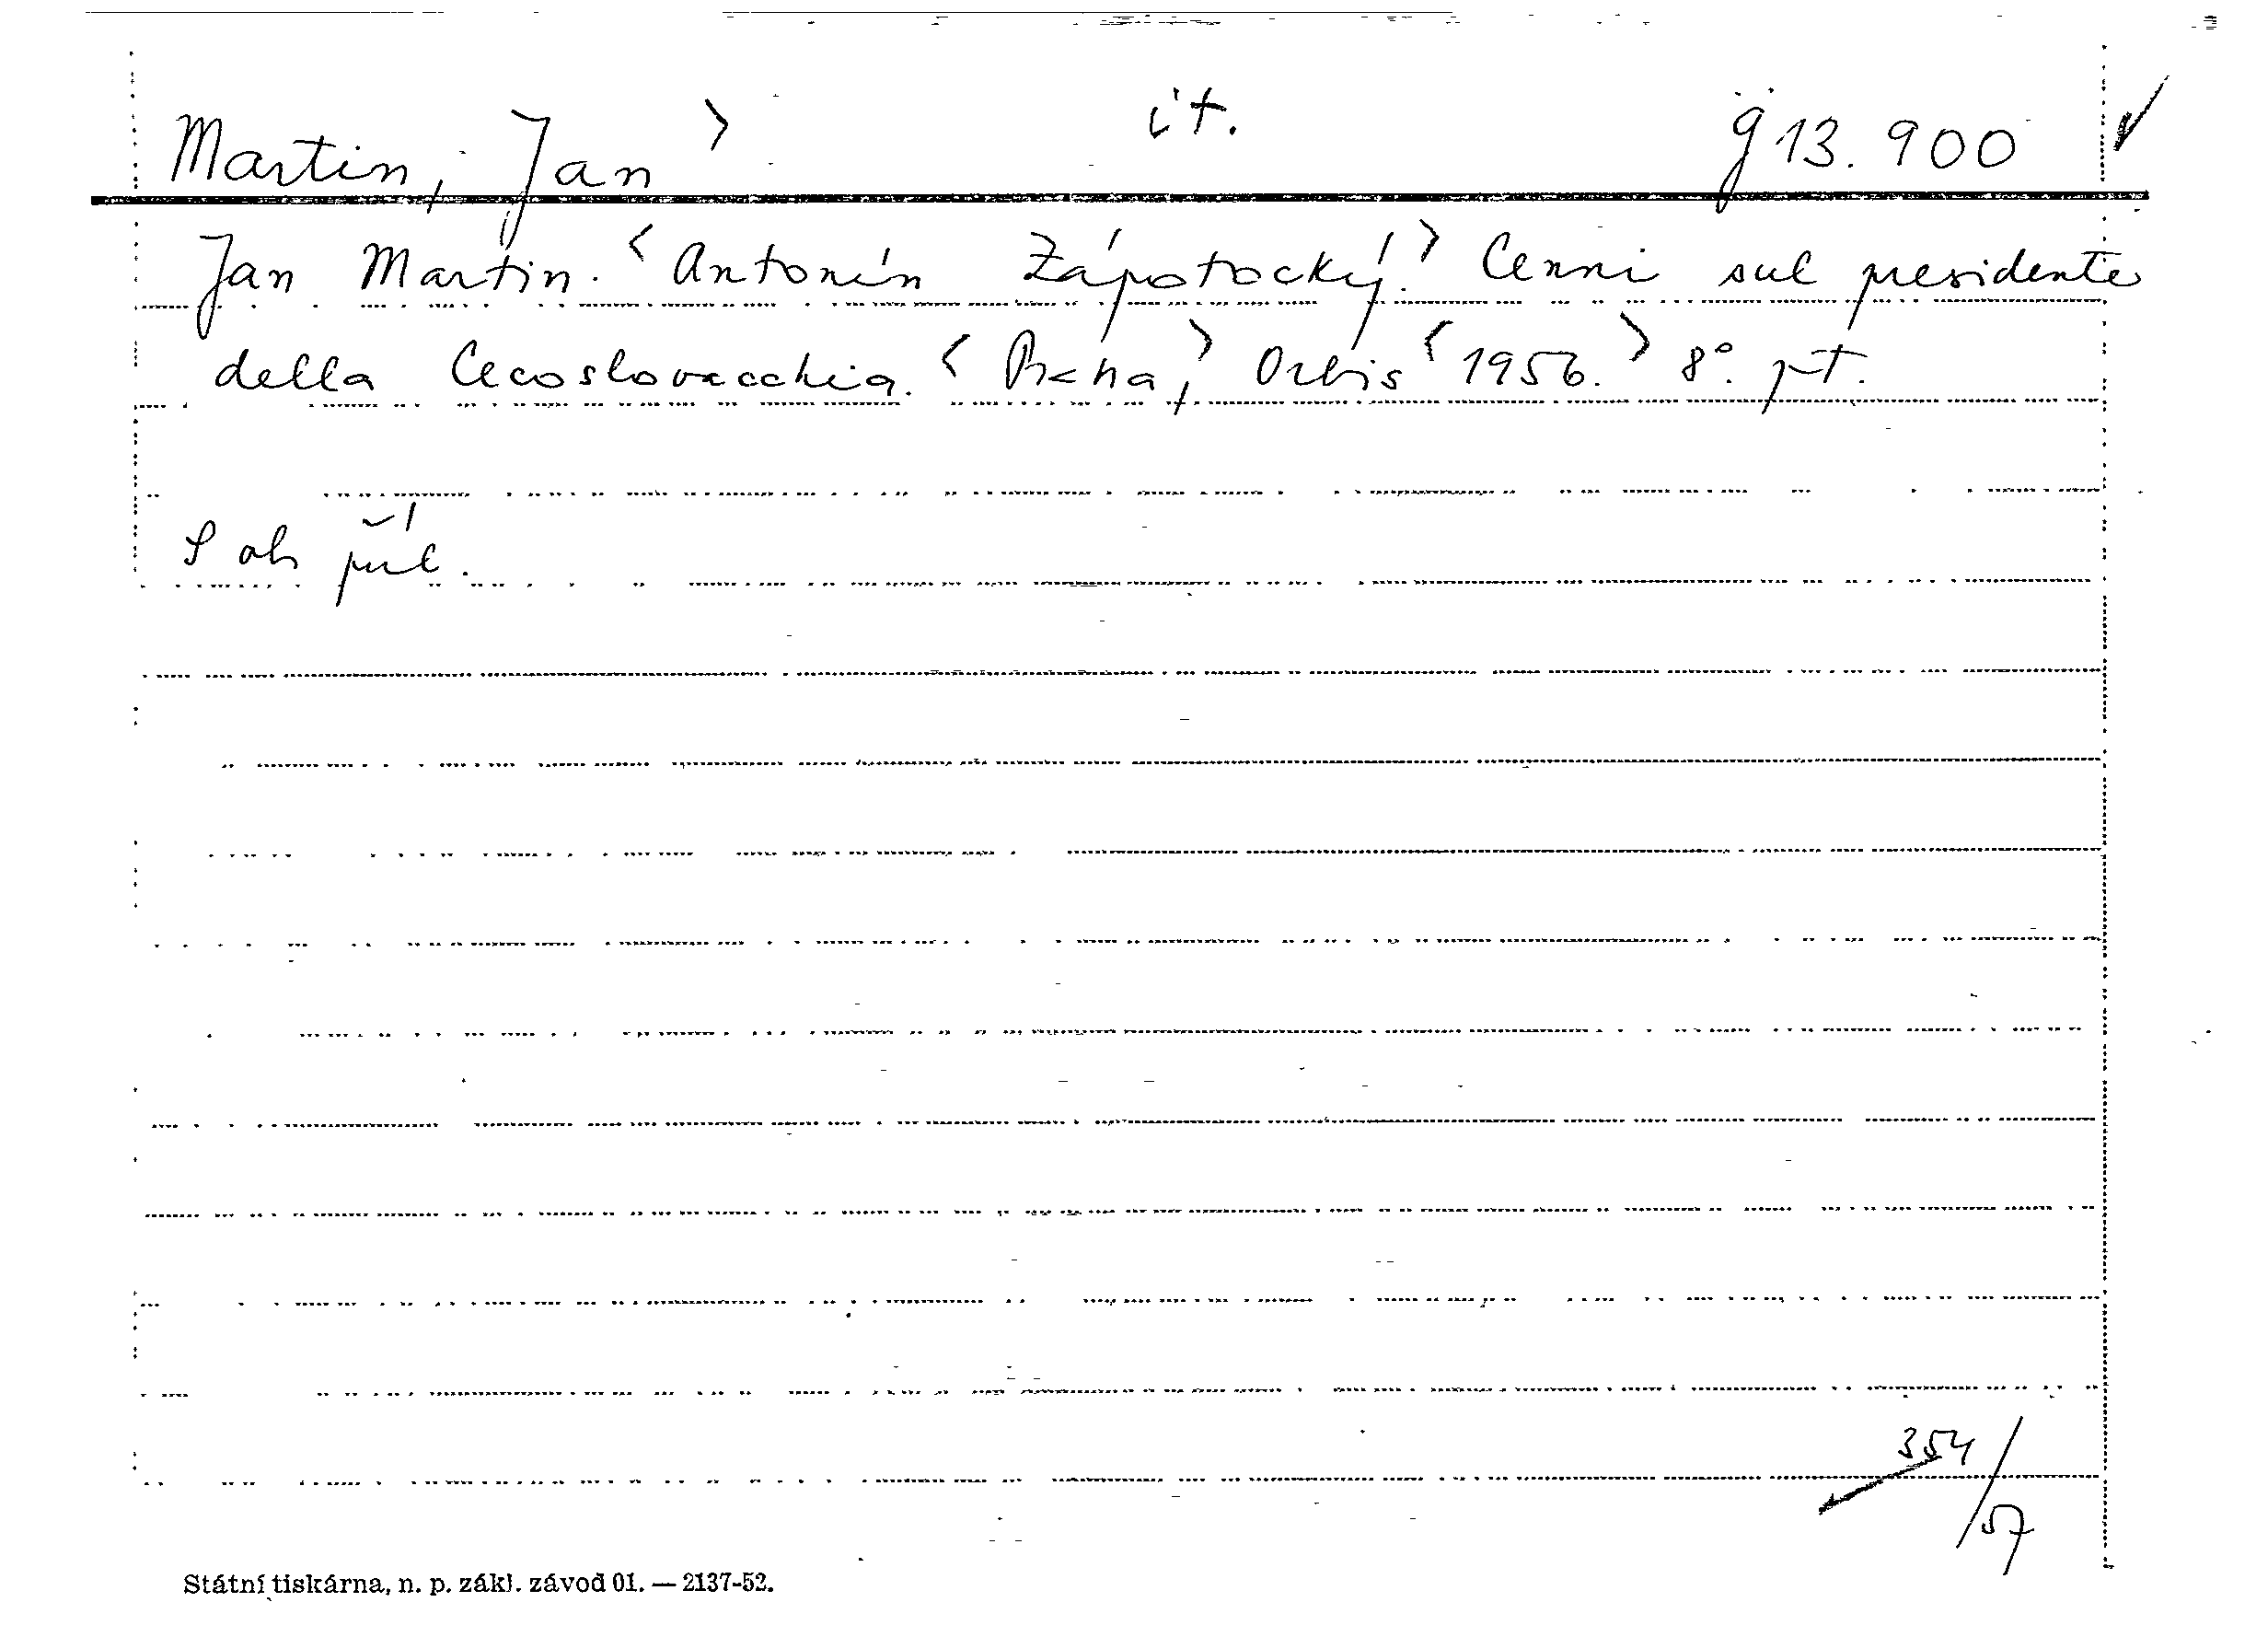 Martin, Jan > it. g 13.900
Jan Martin. <Antonín Zápotocký.> Cenni sul presidente
della Cecoslovacchia. <Praha,> Orbis <1956.> 8°. pt.
S ob příl.
354/57
Státní tiskárna, n. p. zákl. závod 01. — 2137-52.